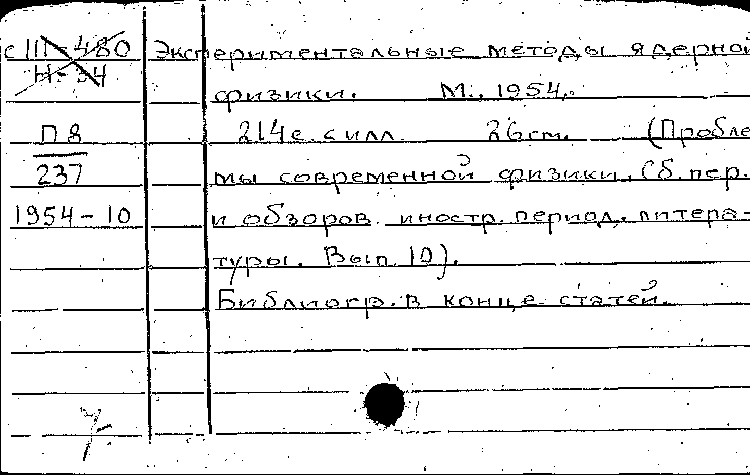 с III-480 Экспериментальные методы ядерной
Н-34
физики. М., 1954.
П 8 214с. с илл. 26см. (Пробле
237 мы современной физики. Сб. пер.
1954-10 и обзоров иностр. период. литера-
туры. Вып 10).
Библиогр. в конце статей.